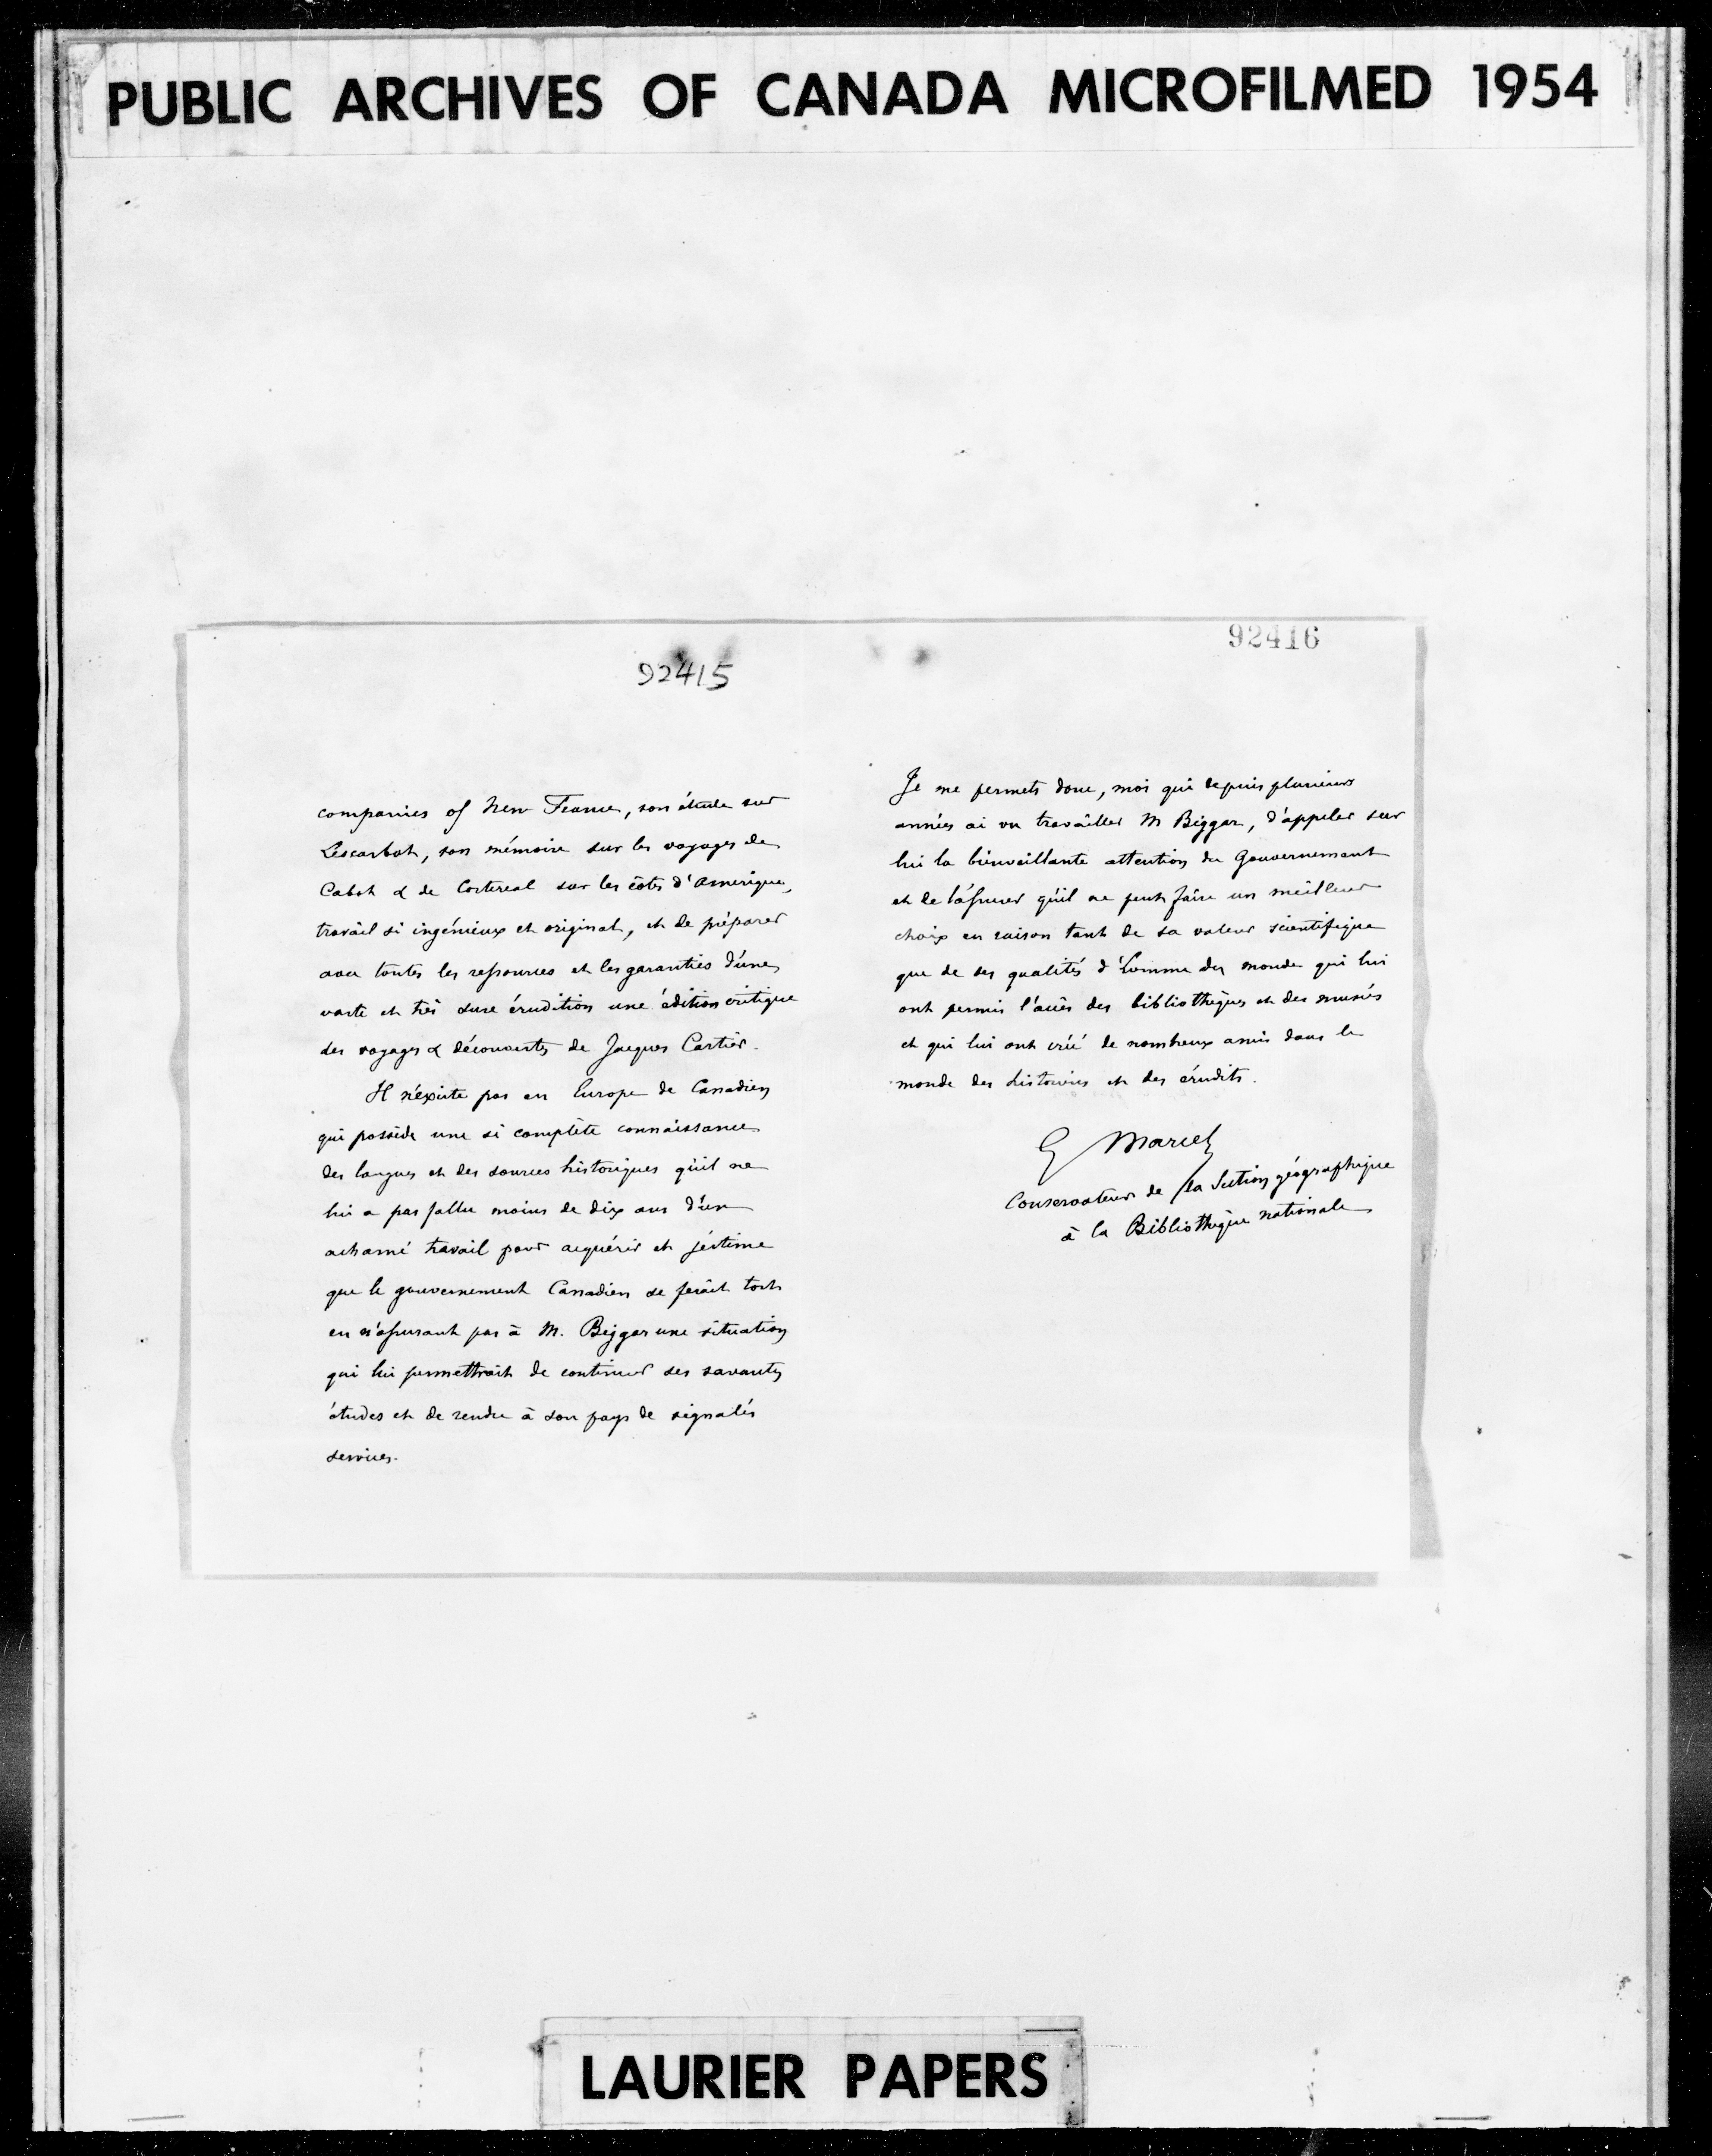 PUBLIC ARCHIVES OF CANADA MICROFILMED 1954
92415
companies of New France, son étude sur
Lescarbot, son mémoire sur les voyages de
Cabot & de Cortereal sur les côtes d'Amerique,
travail si ingénieux et original, et de préparer
avec toutes les ressources et les garanties d'une
vaste et très sure érudition une édition critique
des voyages & découvertes de Jacques Cartier.
Il n'existe pas en Europe de Canadien
qui possède une si complète connaissance
des langues et des sources historiques qu'il ne
lui a pas fallu moins de dix ans d'un
acharné travail pour acquérir et j'estime
que le gouvernement Canadien se ferait tort
en n'assurant pas à M. Biggar une situation
qui lui permettrait de continuer ses savantes
études et de rendre à son pays de signalés
services.
92416
Je me permets donc, moi qui depuis plusieurs
années ai vu travailler M Biggar, d'appeler sur
lui la bienveillante attention du Gouvernement
et de l'assurer qu'il ne peut faire un meilleur
choix en raison tant de sa valeur scientifique
que de ses qualités d'homme du monde qui lui
ont permis l'accès des bibliothèques et des musées
et qui lui ont créé de nombreux amis dans le
monde des historiens et des érudits.
G Marcel
Conservateur de la Section géographique
à la Bibliothèque nationale
LAURIER PAPERS